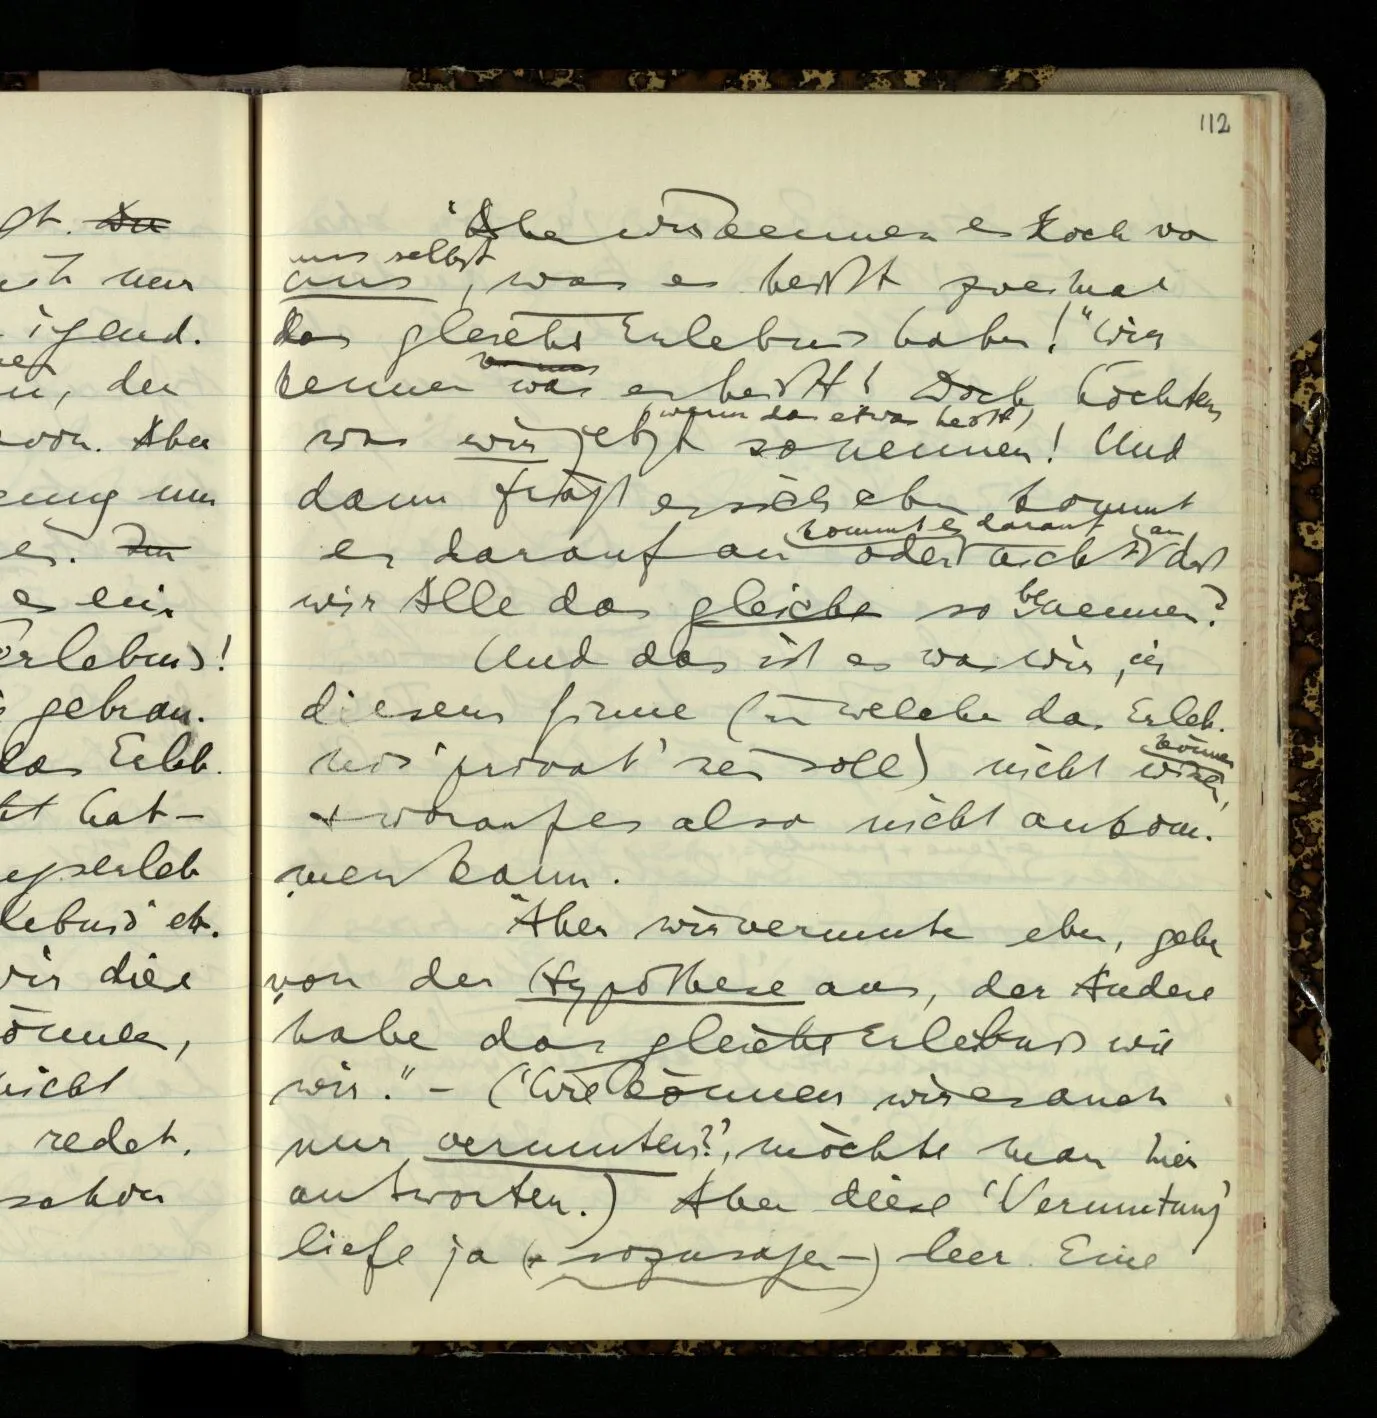 112
gt. Du
nur
irgend.
, der
von. Aber
nur
es ein
Erlebnis)!
gebrau-
das Erleb-
hat –
Erlebnis" etc.
wir diese
können,
nicht
redet.
schon
"Aber wir kennen es doch von
uns selbst
uns, was es heißt zweimal
das gleiche Erlebnis haben!" Wir
von uns
kennen was es heißt! Doch höchstens
(wenn das etwas heißt)
was wir jetzt so nennen! Und
dann frägt es sich eben kommt
kommt es darauf an
es darauf an oder nicht daß
wir Alle das gleiche so benennen?
Und das ist es was wir, in
diesem Sinne (in welchem das Erleb-
können
nis 'privat' sein soll) nicht wissen,
+ worauf es also nicht ankom-
men kann.
"Aber wir vermuten eben, gehen
von der Hypothese aus, der Andere
habe das gleiche Erlebnis wie
wir." – ('Wie können wir es auch
nur vermuten?', möchte man hier
antworten.) Aber diese 'Vermutung'
liefe ja (– sozusagen –) leer. Eine